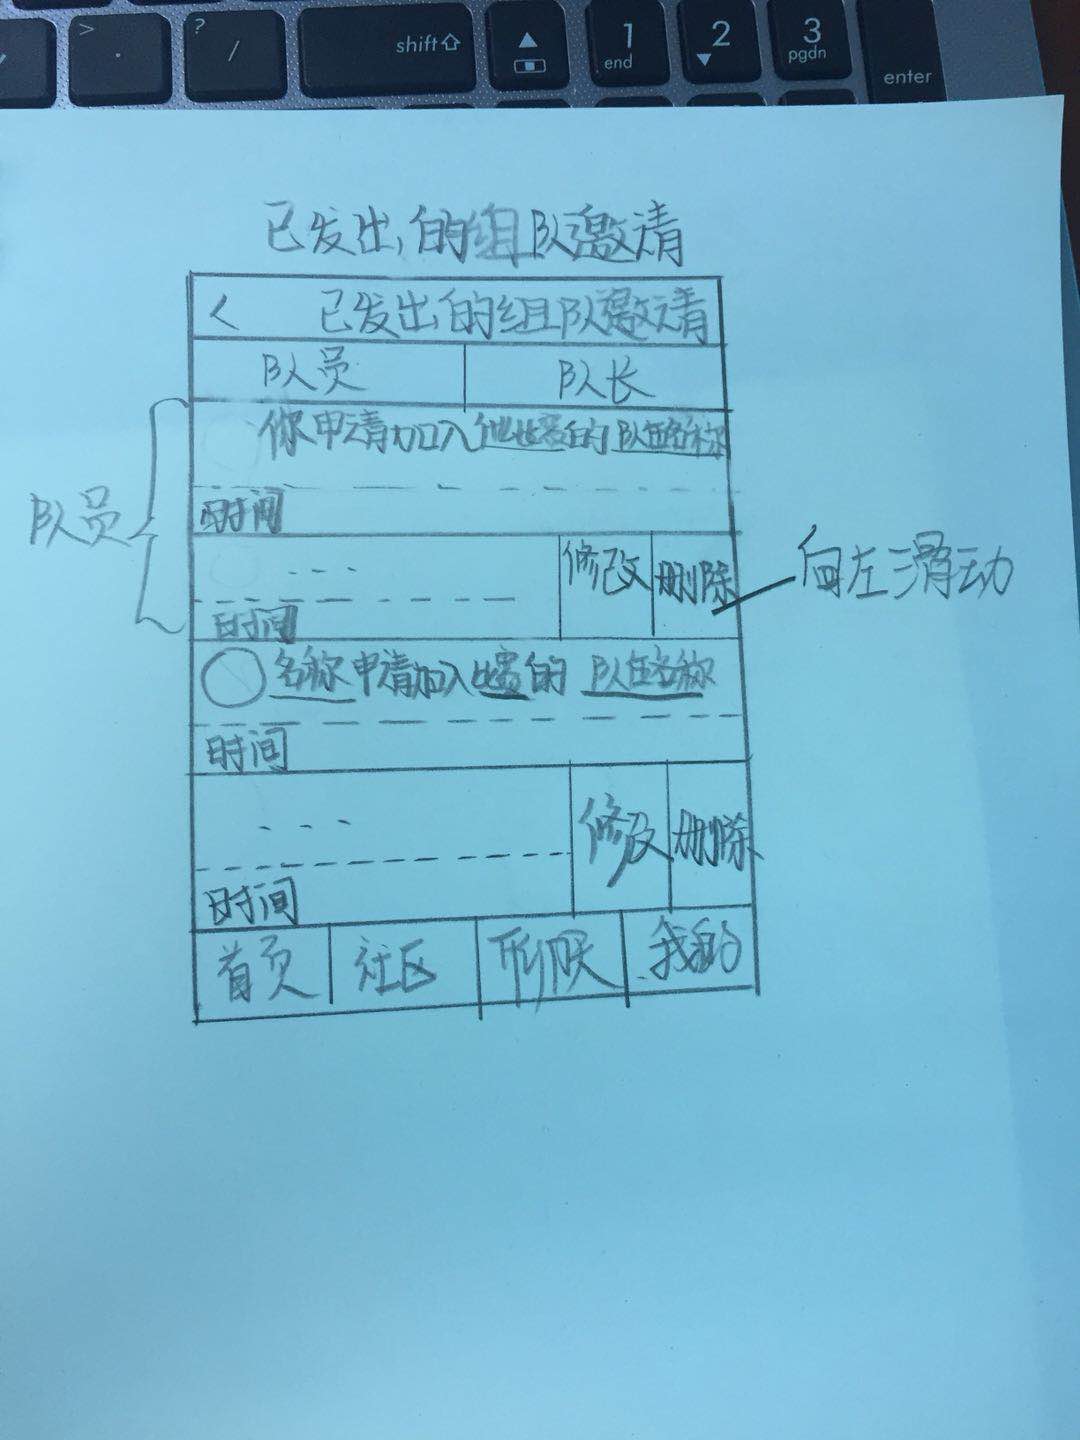 shift
1
end
2
3
pgdn
enter
>
.
?
/
已发出的组队邀请
< 已发出的组队邀请
队员 队长
你申请加入 的 队伍名称
时间
队员
- - - 修改 删除
向左滑动
时间
名称申请加入比赛的 队伍名称
时间
- - - 修改 删除
时间
首页 社区 我的